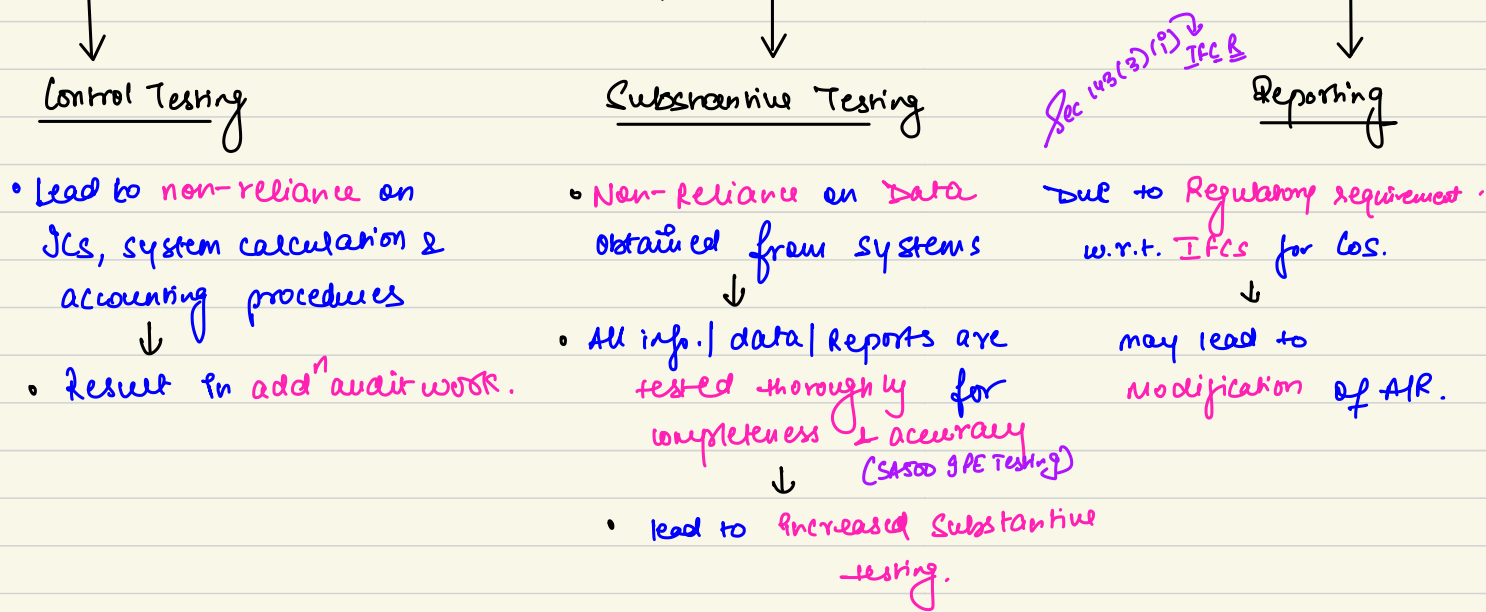 Control Testing
• Lead to non-reliance on
ICS, system calculation &
accounting procedures
↓
• Result in addⁿ audit work.
Substantive Testing
• Non-Reliance on Data
obtained from systems
↓
• All info./ data/ Reports are
tested thoroughly for
completeness & accuracy
(SA500 IPE Testing)
↓
• lead to increased Substantive
testing.
Sec 143(3)(i) → IFC R
Reporting
Due to Regulatory requirement.
w.r.t. IFCS for Cos.
↓
may lead to
Modification of A/R.